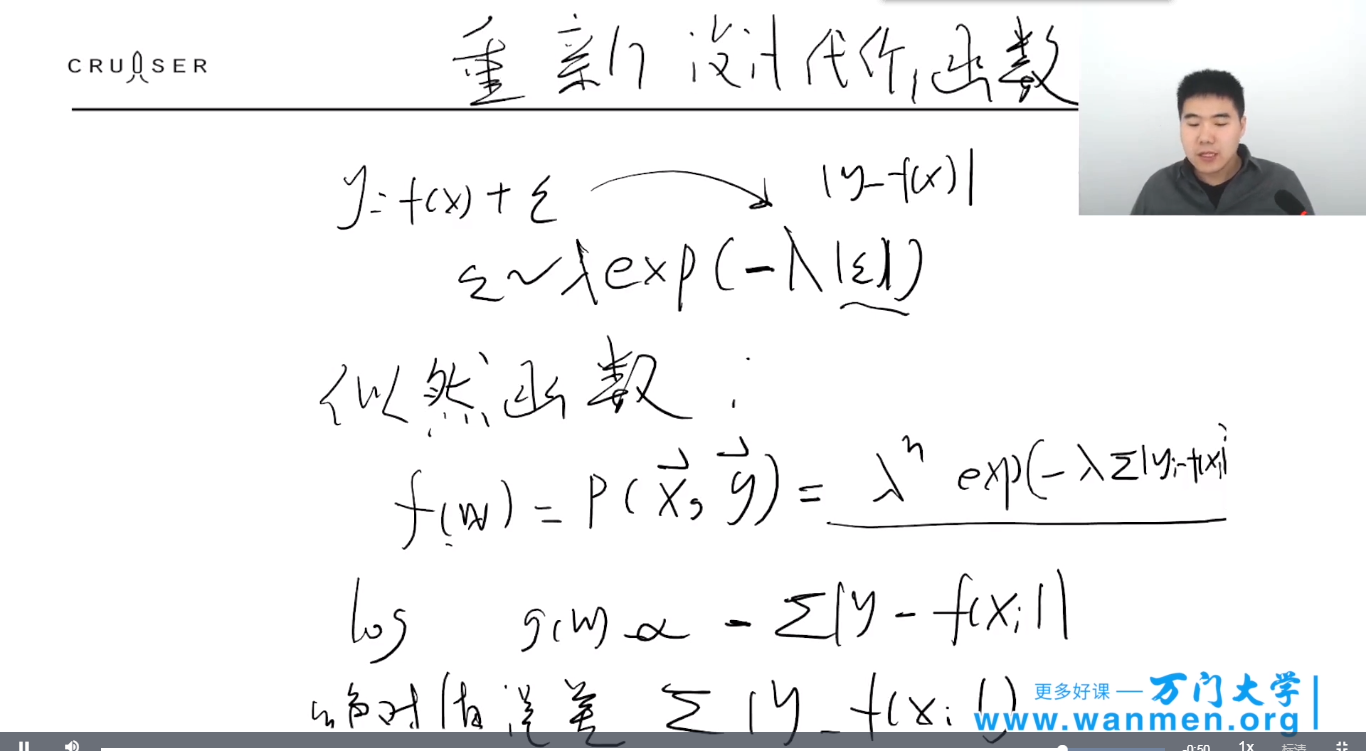 CRUISER
重新设计代价函数
y = f(x) + ε
|y - f(x)|
ε ~ λ exp(-λ|ε|)
似然函数:
f(w) = p(x⃗, y⃗) = λⁿ exp(-λΣ|yi-f(xi)|
log g(w) ∝ - Σ|y - f(xi)|
绝对值误差 Σ|y - f(xi)
更多好课 — 万门大学
www.wanmen.org
-0:50 1x 标清